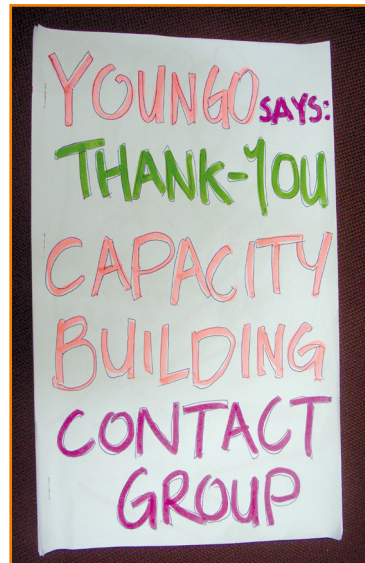 YOUNGO SAYS:
THANK-YOU
CAPACITY
BUILDING
CONTACT
GROUP